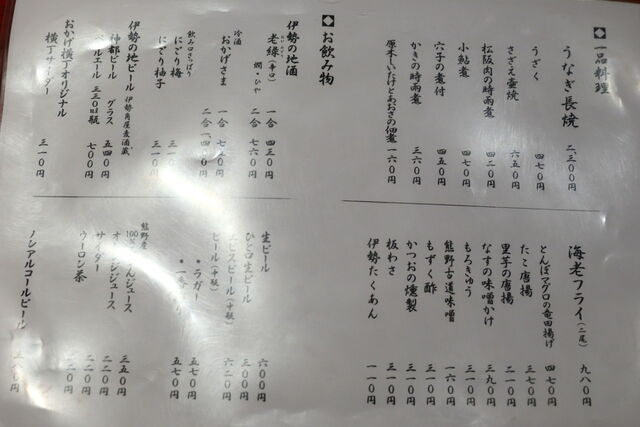 一品料理
うなぎ長焼 二、三〇〇円
うざく 四七〇円
さざえ壷焼 六五〇円
松阪肉の時雨煮 四二〇円
小鮎煮 四七〇円
穴子の煮付 四五〇円
かきの時雨煮 三六〇円
原木しいたけとあおさの佃煮 一六〇円
海老フライ(二尾) 九八〇円
とんぼマグロの竜田揚げ 四七〇円
たこ唐揚 三七〇円
里芋の唐揚 二一〇円
なすの味噌かけ 三九〇円
もろきゅう 三一〇円
熊野古道味噌 一六〇円
もずく酢 三一〇円
かつおの燻製 三一〇円
板わさ 三一〇円
伊勢たくあん 一一〇円
お飲み物
伊勢の地酒
老緑(辛口) 一合 四三〇円
燗・ひや 二合 七六〇円
冷酒
おかげさま 一合
二合
飲み口さっぱり
にごり梅
にごり柚子 三一〇円
伊勢の地ビール 伊勢角屋麦酒蔵
神都ビール グラス 五四〇円
ペールエール 三三〇瓶 七〇〇円
おかげ横丁オリジナル
横丁サイダー 三一〇円
生ビール 六〇〇円
ひと口生ビール 三〇〇円
エビスビール(中瓶) 六二〇円
ビール(中瓶)
・ラガー 五七〇円
五七〇円
熊野産
100% ジュース 三五〇円
オレンジジュース 二二〇円
サイダー 二二〇円
ウーロン茶 二二〇円
ノンアルコールビール